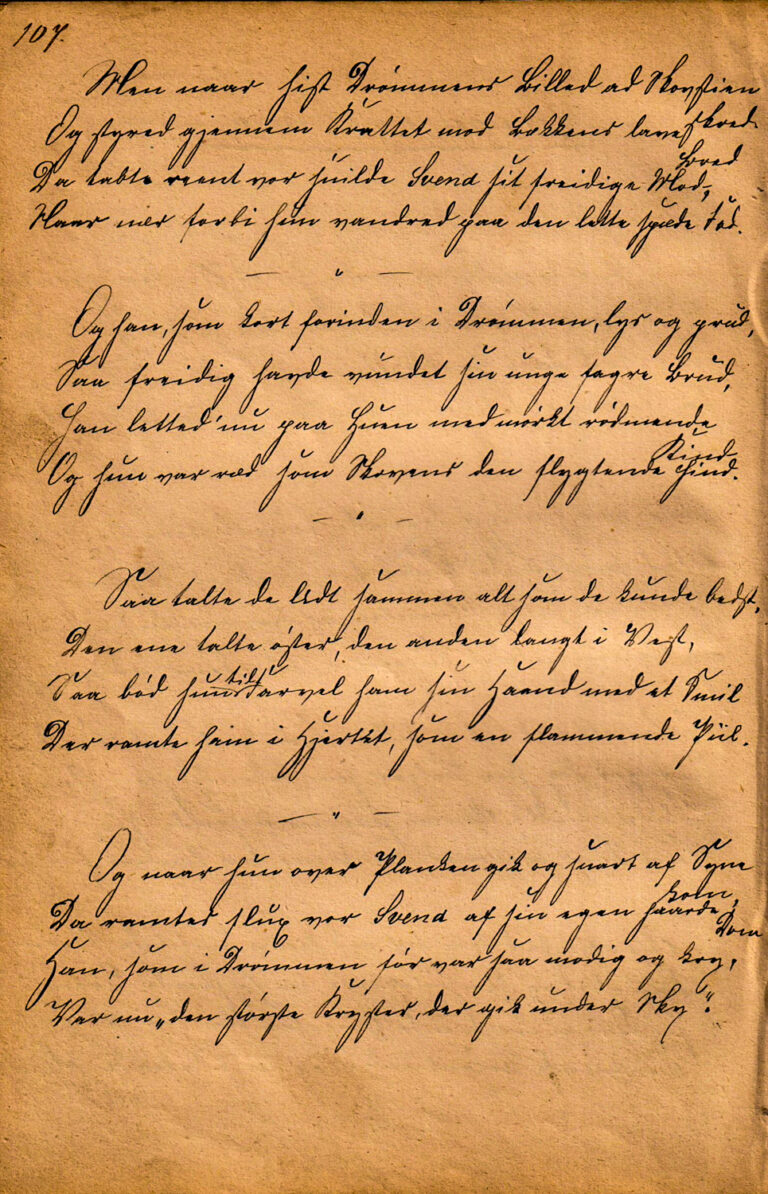 107.
Men naar hist Drømmens Billed ad Skovstien skred
Og styred gjennem Krattet mod Bækkens lave Bred
Da tabte reent vor snilde Svend sit freidige Mod,
Naar nær forbi hun vandred paa den lette spæde Fod.
Og han, som kort forinden i Drømmen, lys og prud,
Saa freidig havde vundet sin unge fagre Brud,
Han letted' nu paa Huen med mörkt rödmende Kind
Og hun var ræd som Skovens den flygtende Hind.
Saa talte de lidt sammen alt som de kunde bedst,
Den ene talte öster, den anden langt i Vest,
Saa bød hun tilst Farvel ham sin Haand med et Smil
Der ramte ham i Hjertet, som en flammende Piil.
Og naar hun over Planken gik og snart af Syne kom,
Da ramtes slux vor Svend af sin egen haarde Dom
Han, som i Drømmen för var saa modig og kry,
Var nu „den störste Kryster, der gik under Sky“.